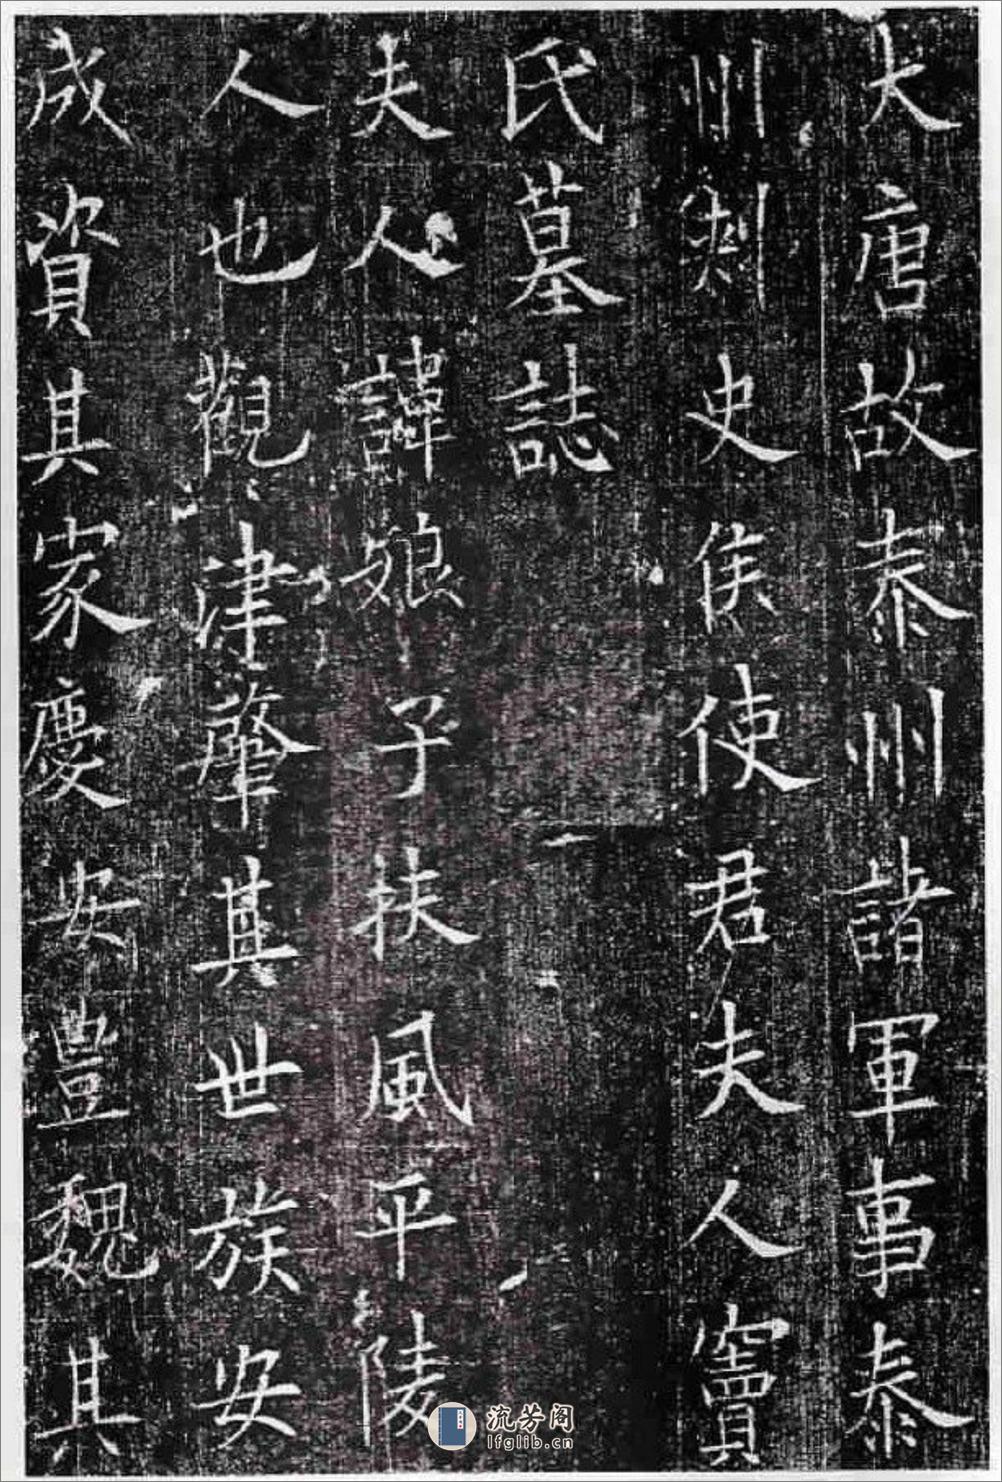 大唐故泰州諸軍事泰
州刺史侯使君夫人竇
氏墓誌
夫人諱娘子扶風平陵
人也觀津肇其世族安
成資其家慶安豊魏其
流芳阁
lfglib.cn